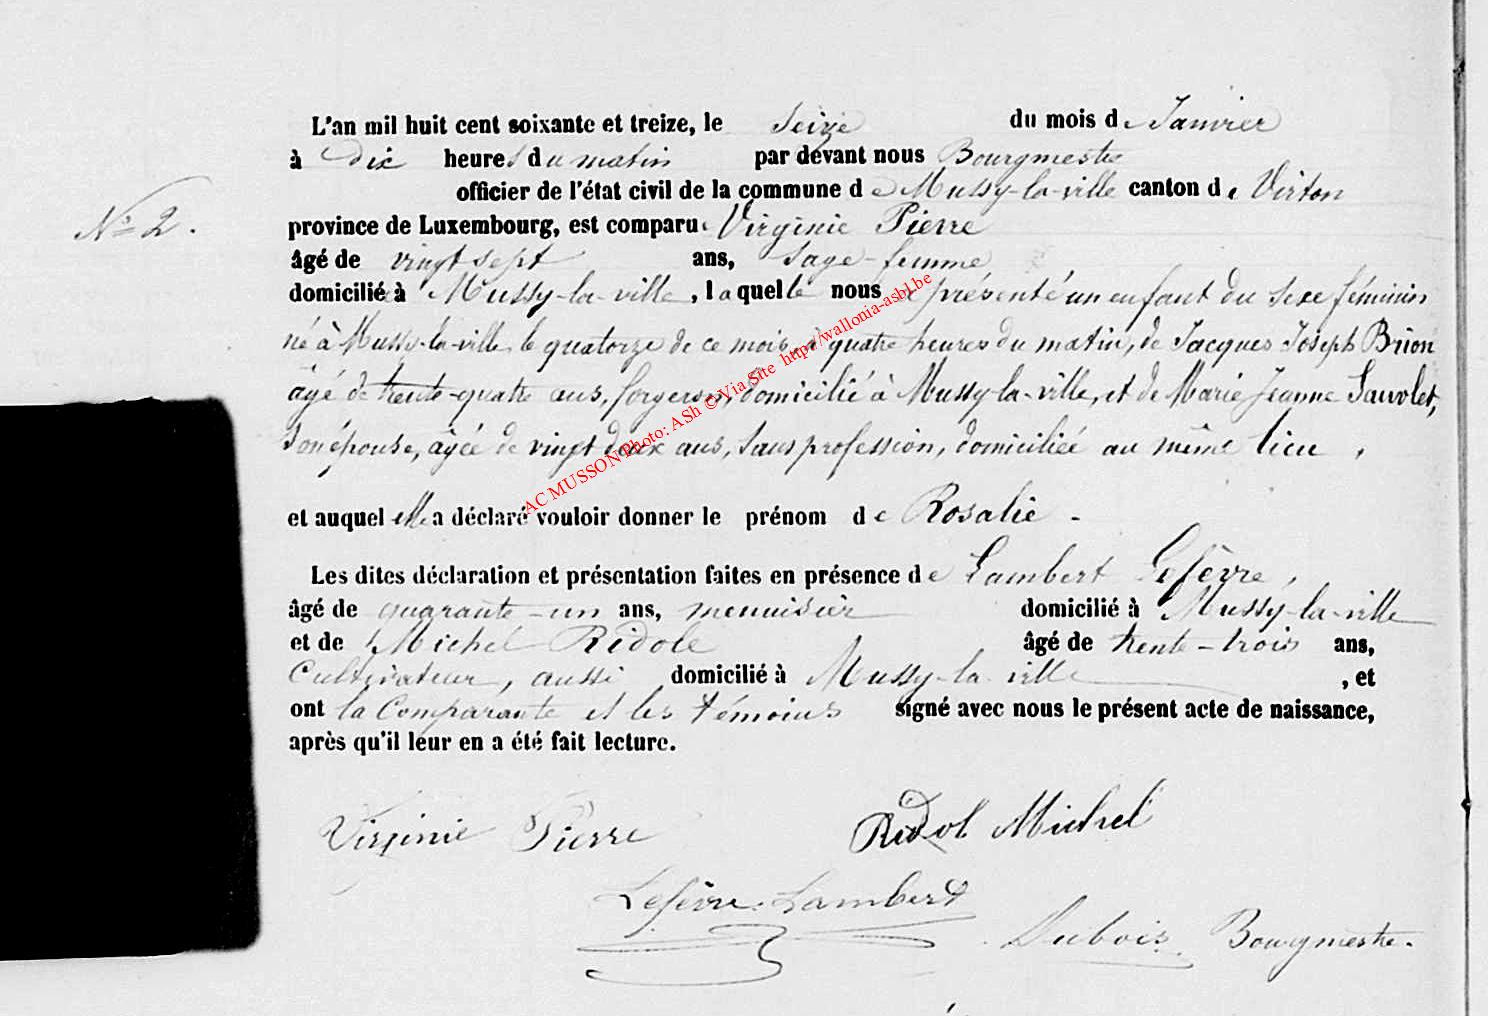 L'an mil huit cent soixante et treize, le Seize du mois de Janvier
à dix heures du matin par devant nous Bourgmestre
officier de l'état civil de la commune de Mussy-la-ville canton de Virton
N° 2.
province de Luxembourg, est comparue Virginie Pierre
âgé de vingt sept ans, Sage-femme
domicilié à Mussy-la-ville, laquelle nous a présenté un enfant du sexe féminin
né à Mussy-la-ville le quatorze de ce mois, à quatre heures du matin, de Jacques Joseph Brion
âgé de trente-quatre ans, forgeron, domicilié à Mussy-la-ville, et de Marie Jeanne Sauvlet,
son épouse, âgée de vingt deux ans, sans profession, domiciliée au même lieu,
AC MUSSON Photo: ASh © Via Site http://wallonia-asbl.be
et auquel elle a déclaré vouloir donner le prénom de Rosalie -
Les dites déclaration et présentation faites en présence de Lambert Lefèvre,
âgé de quarante-un ans, menuisier domicilié à Mussy-la-ville
et de Michel Ridole âgé de trente-trois ans,
Cultivateur, aussi domicilié à Mussy-la-ville, et
ont la Comparante et les témoins signé avec nous le présent acte de naissance,
après qu'il leur en a été fait lecture.
Virginie Pierre Ridol Michel
Lefèvre Lambert
Dubois Bourgmestre.